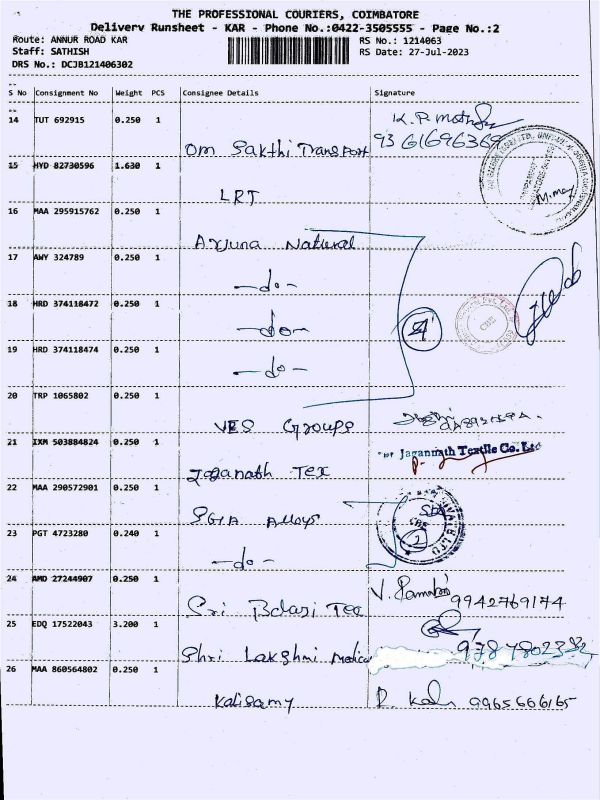 THE PROFESSIONAL COURIERS, COIMBATORE
Delivery Runsheet - KAR - Phone No.:0422-3505555 - Page No.:2
Route: ANNUR ROAD KAR RS No.: 1214063
Staff: SATHISH RS Date: 27-Jul-2023
DRS No.: DCJB121406302
S No Consignment No Weight PCS Consignee Details Signature
14 TUT 692915 0.250 1
Om Sakthi Transport
15 HYD 82730596 1.630 1
LRT
16 MAA 295915762 0.250 1
Arjuna Natural
17 AWY 324789 0.250 1
-do-
18 HRD 374118472 0.250 1
-do- 4
19 HRD 374118474 0.250 1
-do-
20 TRP 1065802 0.250 1
VES Groups
21 IXM 503884824 0.250 1 For Jagannath Textile Co. Ltd
Jaganath Tex
22 MAA 290572901 0.250 1
Alloys
23 PGT 4723280 0.240 1 2
-do-
24 AMD 27244907 0.250 1
Sri 9942769174
25 EDQ 17522043 3.200 1
Shri Lakshmi Medical
26 MAA 860564802 0.250 1
Kalisamy 9965666165